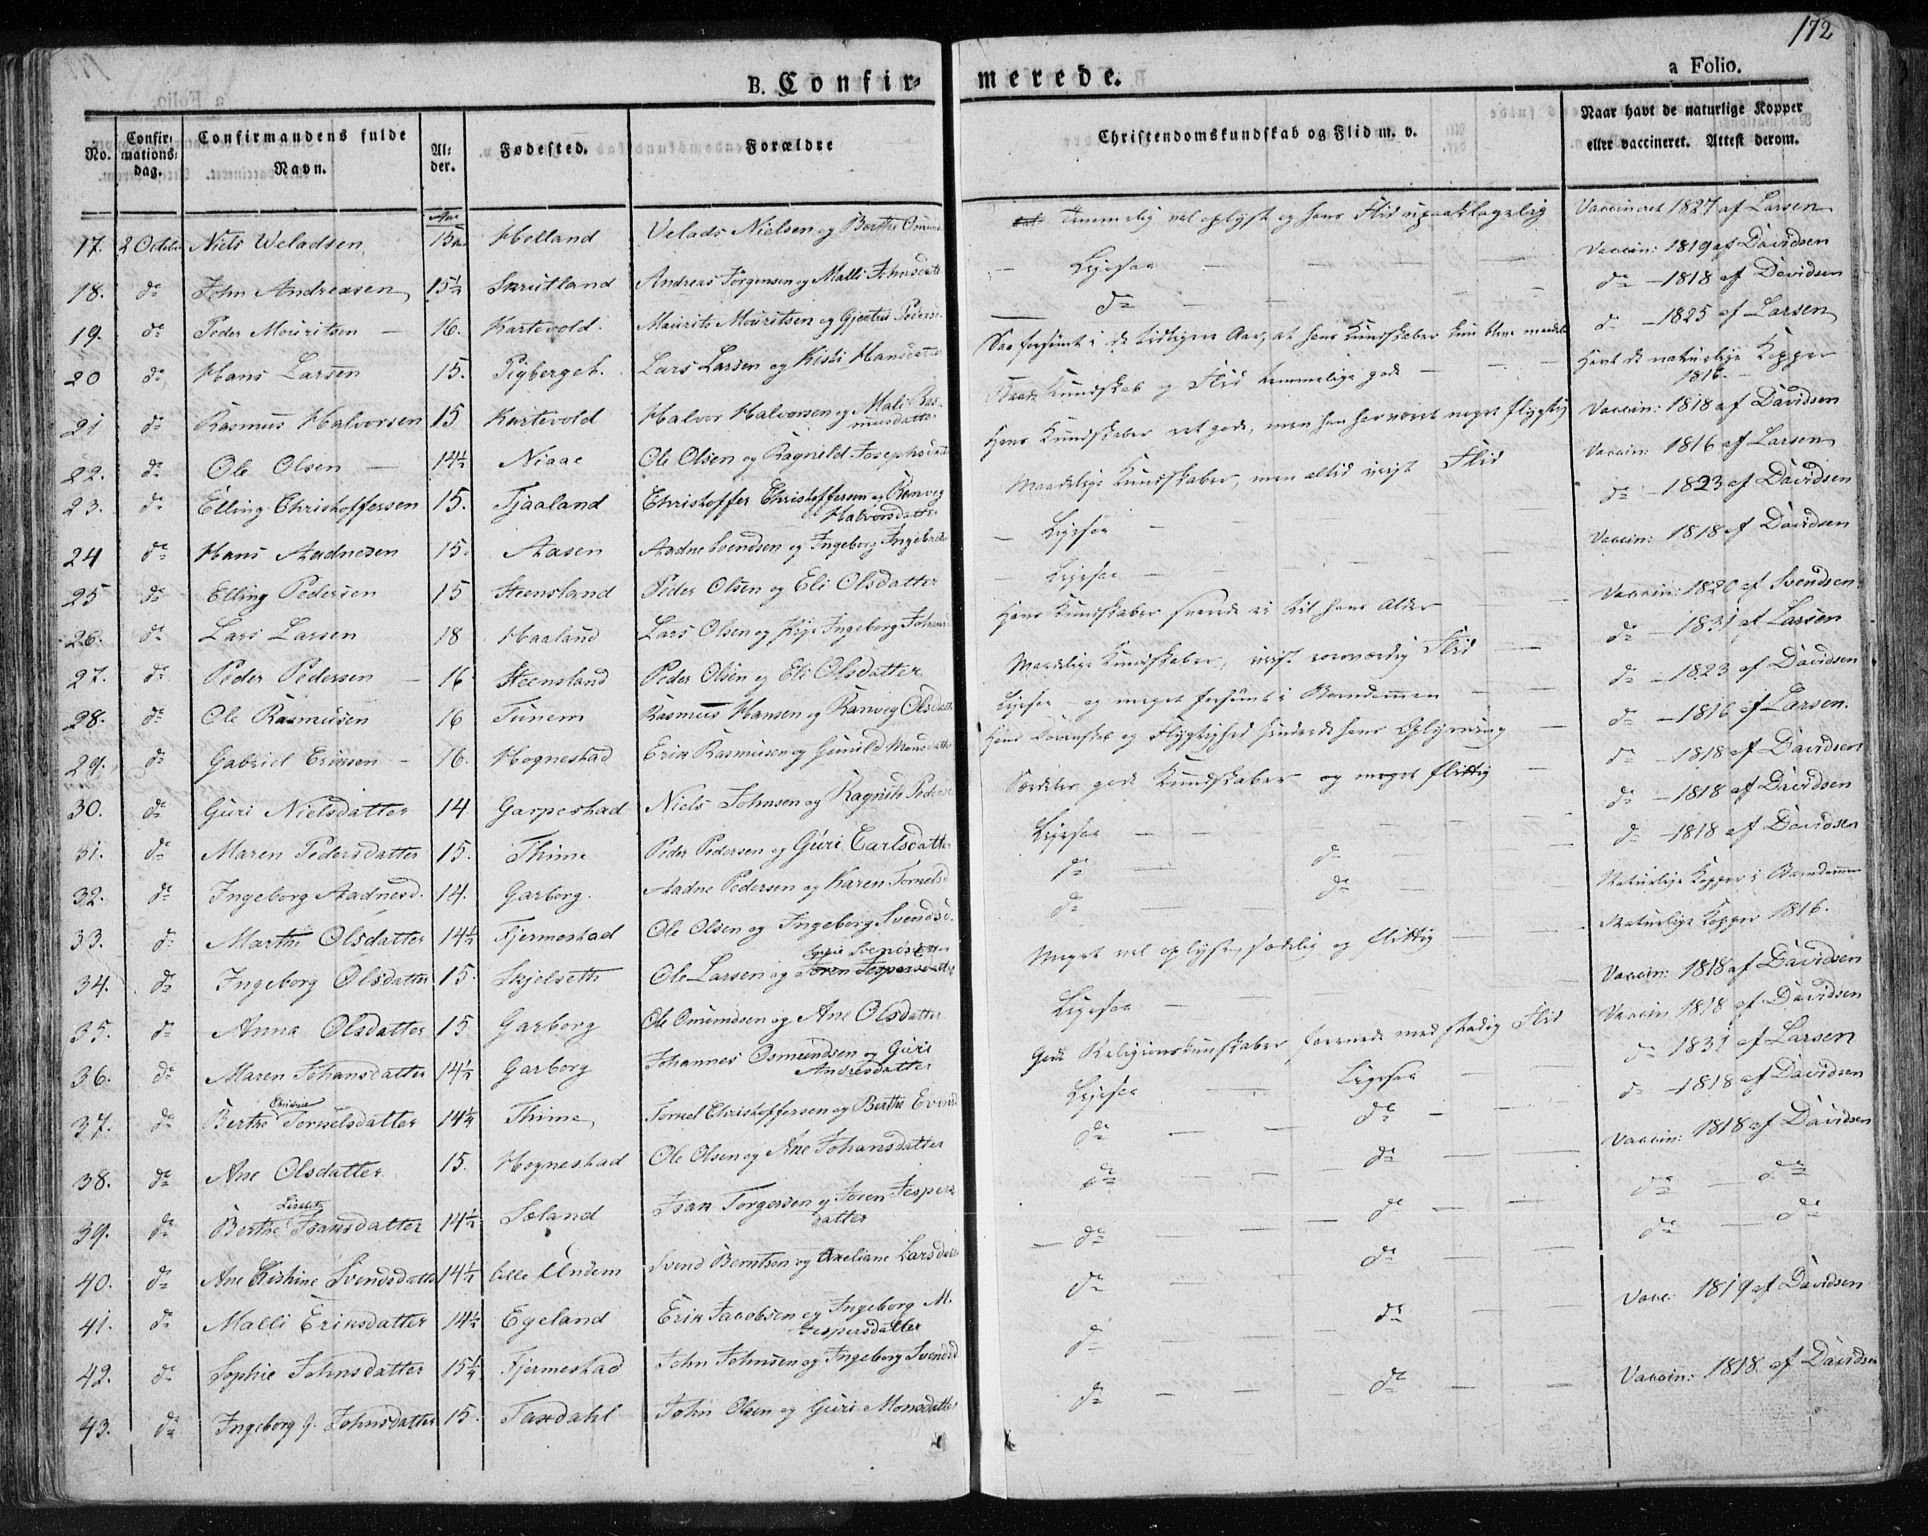 172
B. Confir- merede. a Folio.
No. Confir-mations-dag. Confirmandens fulde Navn. Al-der. Fødested. Forældre Christendomskundskab og Flid m. v. Naar havt de naturlige Kopper eller vaccineret. Attest derom.
17. 2 Octob Niels Weladsen Helland Velads Nielsen og Berthe temmelig vel oplyst og hans Flid upaaklagelig Vaccineret 1827 af Larsen
18. do John Andreasen 15½ Skrutland Andreas Jörgensen og Malli Johnsdatt Ligesaa Vaccin: 1819 af Davidsen
19. do Peder Mouritsen 16. Kartevold Maurits Mouritsen og Peders do do 1818 af Davidsen
20 do Hans Larsen 15. Lars Larsen og Kisti Hansdatter Saa forsömt i de tidligere Aar, at hans Kundskaber kun bleve maadel d 1825 af Larsen
21 do Rasmus Halvorsen 15 Kartevold Halvor Halvorsen og Mali Ras-musdatter Kundskab og Flid temmelige gode Havt de naturlige Kopper 1816.
22. do Ole Olsen 14½ Niaae Ole Olsen og Ragnild Josephsdatter Hans Kundskaber ret gode, men han har været meget flygtig Vaccin: 1818 af Davidsen
23. do Elling Christoffersen 15. Tjaaland Christoffer Christoffersen og Ranveg Halvorsdatter Maadelige Kundskaber, men altid viist Flid Vaccin: 1816 af Larsen
24 do Hans Aadnesen 15. Aasen Aadne Svendsen og Ingeborg Ligesaa do 1823 af Davidsen
25 do Elling Pedersen 15 Steensland Peder Olsen og Eli Olsdatter Ligesaa Vaccin: 1818 af Davidsen
26. do Lars Larsen 18 Haaland Lars Olsen og Ingeborg Hans Kundskaber svarede ei til hans Alder Vaccin: 1820 af Svendsen
27. do Peder Pedersen 16 Steensland Peder Olsen og Eli Olsdatter Maadelige Kundskaber, viist roesværdig Flid do 1831 af Larsen
28. do Ole Rasmusen 16 Tunem Rasmus Hansen og Ranveg Olsdatt Ligesaa og meget forsömt i Barndommen do 1823 af Davidsen
29. do Gabriel Eriksen 16. Hognestad Erik Rasmusen og Gunild Monsdatter Hans Dovenskab og Flygtighed hindrede hans Oplysning do 1816 af Larsen.
30. do Guri Nielsdatter 14 Garpestad Niels Johnsen og Ragnild Peders Særdeles gode Kundskaber og meget flittig do 1818 af Davidsen
31. do Maren Pedersdatter 15. Thime Peder Pedersen og Guri Carlsdatter Ligesaa do 1818 af Davidsen
32. do Ingeborg Aadnesd. 14. Garborg. Aadne Pedersen og Karen Tornelsd do do d 1818 af Davidsen
33. do Marthe Olsdatter 14½ Fjermestad Ole Olsen og Ingeborg Svendsd. do do Naturlige Kopper i Barndommen
34. do Ingeborg Olsdatter 15. Skjelseth Ole Larsen og Meget vel oplyst, sædelig og flittig Naturlige Kopper 1816.
35. do Anna Olsdatter 15 Garborg Ole Omundsen og Ane Olsdatter Ligesaa Vaccin: 1818 af Davidsen
36. do Maren Johansdatter 14½ Garborg Johannes Osmundsen og Guri Andresdatter Gode Religionskundskaber, forenede med stadig Flid Vaccin 1818 af Davidsen
37. do Berthe Tornelsdatter 14¼ Thime Tornel Christoffersen og Berthe Ligesaa Ligesaa do 1831 af Larsen
38. do Ane Olsdatter 15. Hognestad Ole Olsen og Ane Johansdatter do do d 1818 af Davidsen
39. do Berthe Lisabet Isansdatter 14½ Soeland Isan Torgersen og Soren Jespers-datter do do Vaccin: 1818 af Davidsen
40. do Ane Kistine Svendsdatter 14½ Lille Undem Svend Berntsen og Axeliane Larsdatter do do do do
41. do Malli Eriksdatter 14½ Egeland Erik Jacobsen og Ingeborg M. Jespersdatter do do do do
42. do Sophie Johnsdatter 15¼ Fjermestad John Johnsen og Ingeborg Svendsd d do Vacc: 1819 af Davidsen
43. do Ingeborg J. Johnsdatter 15. Taxdahl John Olsen og Guri Monsdatter do do Vaccin: 1818 af Davidsen